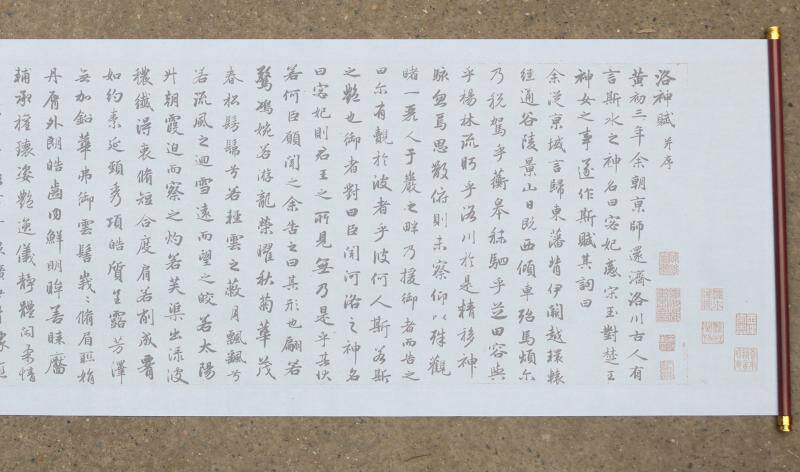 洛神賦 并序
黃初三年余朝京師還濟洛川古人有
言斯水之神名曰宓妃感宋玉對楚王
神女之事遂作斯賦其詞曰
余從京域言歸東藩背伊闕越轘轅
經通谷陵景山日既西傾車殆馬煩尔
乃稅駕乎蘅皋秣駟乎芝田容與
乎楊林流眄乎洛川於是精移神
駭忽焉思散俯則未察仰以殊觀
睹一麗人于巖之畔乃援御者而告之
曰尔有覿於彼者乎彼何人斯若斯
之豔也御者對曰臣聞河洛之神名
曰宓妃則君王之所見無乃是乎其狀
若何臣願聞之余告之曰其形也翩若
驚鴻婉若游龍榮曜秋菊華茂
春松髣髴兮若輕雲之蔽月飄颻兮
若流風之迴雪遠而望之皎若太陽
升朝霞迫而察之灼若芙蕖出淥波
穠纖得衷脩短合度肩若削成腰
如約素延頸秀項皓質呈露芳澤
無加鉛華弗御雲髻峩〻脩眉聯娟
丹脣外朗皓齒内鮮明眸善睞靨
輔承權瓌姿豔逸儀靜體閑柔情